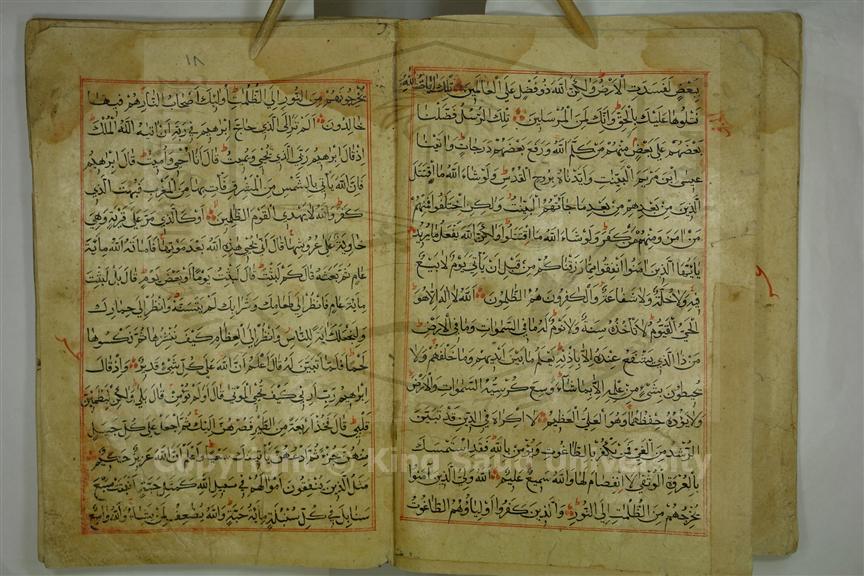 بعض لفسدت الارض ولكن الله ذو فضل على العالمين تلك ايات الله
نتلوها عليك بالحق وانك لمن المرسلين تلك الرسل فضلنا
بعضهم على بعض منهم من كلم الله ورفع بعضهم درجات واتينا
عيسى ابن مريم البينت وايدناه بروح القدس ولو شاء الله ما اقتتل
الذين من بعدهم من بعد ما جاءتهم البينت ولكن اختلفوا فمنهم
من امن ومنهم من كفر ولو شاء الله ما اقتتلوا ولكن الله يفعل ما يريد
يا ايها الذين امنوا انفقوا مما رزقناكم من قبل ان ياتي يوم لا بيع
فيه ولا خلة ولا شفاعة والكفرون هم الظلمون الله لا اله الا هو
الحي القيوم لا تاخذه سنة ولا نوم له ما في السموات وما في الارض
من ذا الذي يشفع عنده الا باذنه يعلم ما بين ايديهم وما خلفهم ولا
يحيطون بشيء من علمه الا بما شاء وسع كرسيه السموات والارض
ولا يؤده حفظهما وهو العلي العظيم لا اكراه في الدين قد تبين
الرشد من الغي فمن يكفر بالطاغوت ويؤمن بالله فقد استمسك
بالعروة الوثقى لا انفصام لها والله سميع عليم الله ولي الذين امنوا
يخرجهم من الظلمات الى النور والذين كفروا اولياؤهم الطاغوت
١٨
يخرجونهم من النور الى الظلمات اولئك اصحاب النار هم فيها
خالدون الم تر الى الذي حاج ابرهيم في ربه ان اتيه الله الملك
اذ قال ابرهيم ربي الذي يحيي ويميت قال انا احيي واميت قال ابرهيم
فان الله ياتي بالشمس من المشرق فات بها من المغرب فبهت الذي
كفر والله لا يهدي القوم الظلمين او كالذي مر على قرية وهي
خاوية على عروشها قال انى يحيي هذه الله بعد موتها فاماته الله مائة
عام ثم بعثه قال كم لبثت قال لبثت يوما او بعض يوم قال بل لبثت
مائة عام فانظر الى طعامك وشرابك لم يتسنه وانظر الى حمارك
ولنجعلك اية للناس وانظر الى العظام كيف ننشزها ثم نكسوها
لحما فلما تبين له قال اعلم ان الله على كل شيء قدير واذ قال
ابرهيم رب ارني كيف تحيي الموتى قال اولم تؤمن قال بلى ولكن ليطمئن
قلبي قال فخذ اربعة من الطير فصرهن اليك ثم اجعل على كل جبل
منهن جزء ثم ادعهن ياتينك سعيا واعلم ان الله عزيز حكيم
مثل الذين ينفقون اموالهم في سبيل الله كمثل حبة انبتت سبع
سنابل في كل سنبلة مائة حبة والله يضعف لمن يشاء والله واسع
Copyright © King Saud University